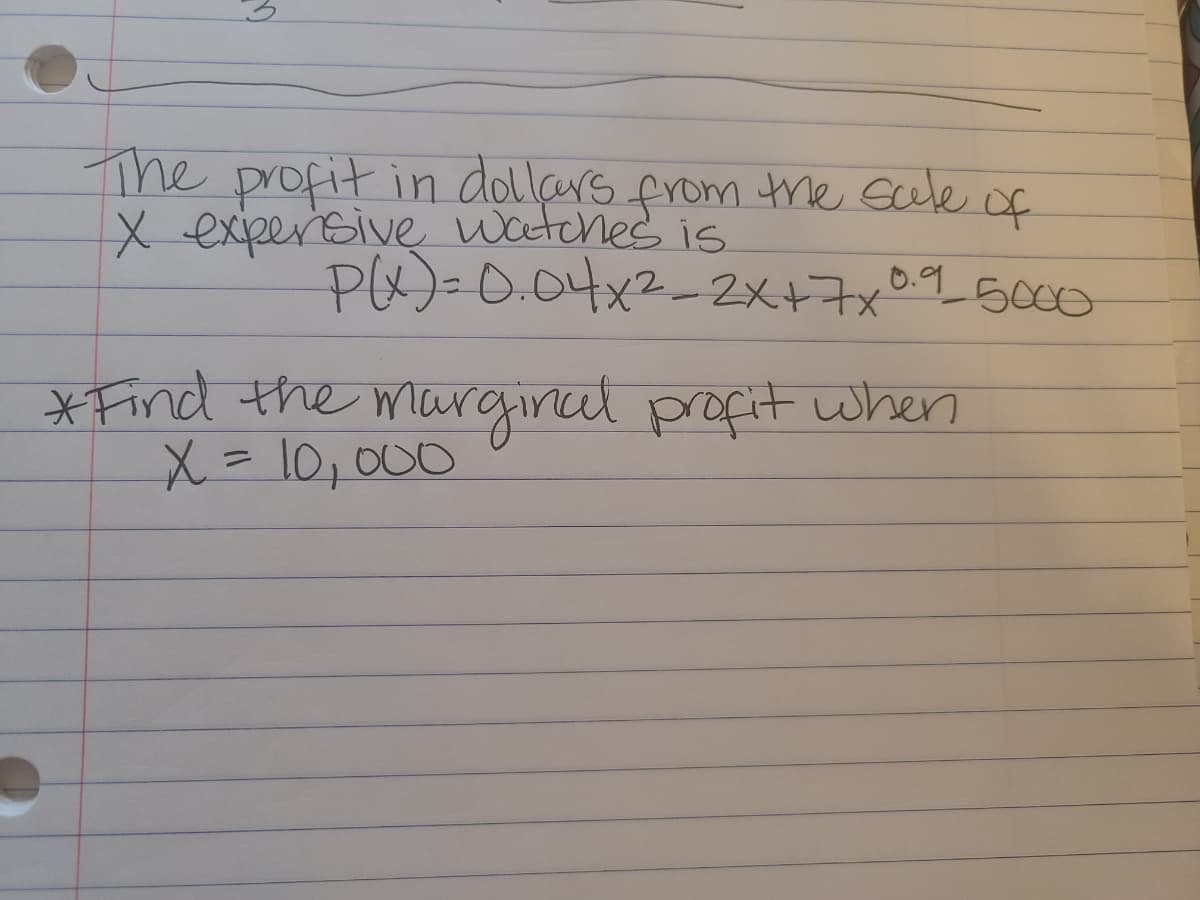 3
The profit in dollars from the sale of
X expensive watches is
P(x)=0.04x²-2x+7x⁰·⁹-5000
*Find the marginal profit when
X = 10,000